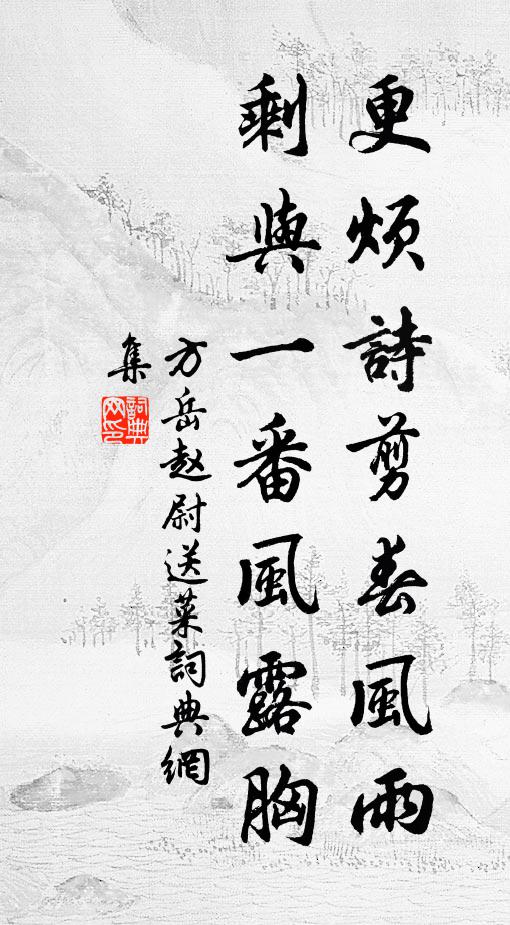 更煩詩剪春風雨
剩與一番風露胸
方岳赵尉送菜詞典網
集
詞典
网印